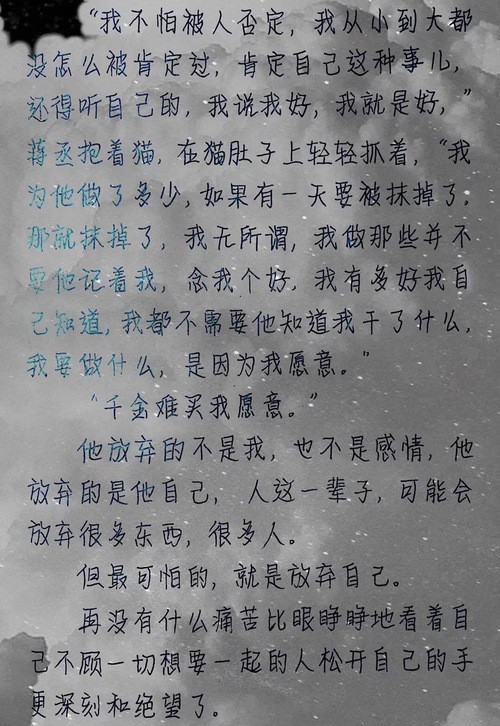 “我不怕被人否定，我从小到大都
没怎么被肯定过，肯定自己这种事儿，
还得听自己的，我说我好，我就是好，”
蒋丞抱着猫，在猫肚子上轻轻抓着，“我
为他做了多少，如果有一天要被抹掉了，
那就抹掉了，我无所谓，我做那些并不
要他记着我，念我个好，我有多好我自
己知道，我都不需要他知道我干了什么，
我要做什么，是因为我愿意。”
“千金难买我愿意。”
他放弃的不是我，也不是感情，他
放弃的是他自己，人这一辈子，可能会
放弃很多东西，很多人。
但最可怕的，就是放弃自己。
再没有什么痛苦比眼睁睁地看着自
己不顾一切想要一起的人松开自己的手
更深刻和绝望了。